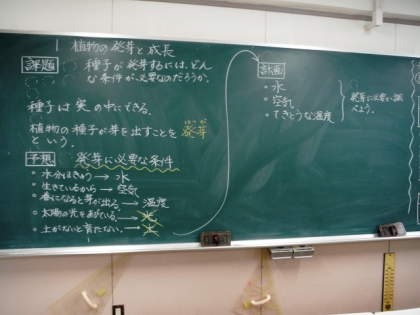 1 植物の発芽と成長
課題 種子が発芽するには、どん
な条件が必要なのだろうか。
種子は実の中にできる。
植物の種子が芽を出すことを 発芽
はつが
という。
予想 発芽に必要な条件
・水分はきゅう → 水
・生きているから → 空気
・春になると芽が出る。→ 温度
・太陽の光をあびている。→ 光
・土がないと育たない。→ 土
計画
・水
・空気
・てきとうな温度
発芽に必要か調
べよう。